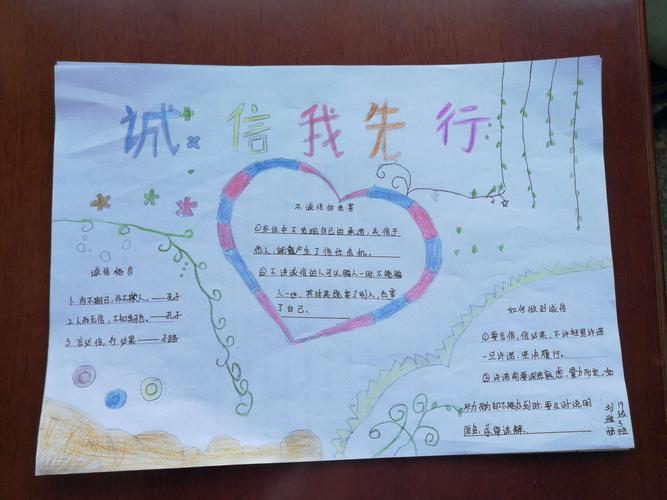 诚信我先行
不诚信的危害
①交往中不兑现自己的承诺,失信于
他人,就会产生了信任危机。
②不讲诚信的人可以骗人一时,不能骗
人一世,其结果既害了别人,也害
了自己。
诚信格言
1. 内不期己,外不欺人。——孔子
2. 人而无信,不知其可。——孔子
3. 言必信,行必果——子路
如何做到诚信
①要言信,信必果,不许轻易许诺
一旦许诺,坚决履行。
②许诺需要深思熟虑,量力而定,如
尽力而为却不能办到时,要及时说明
理由,求得谅解。